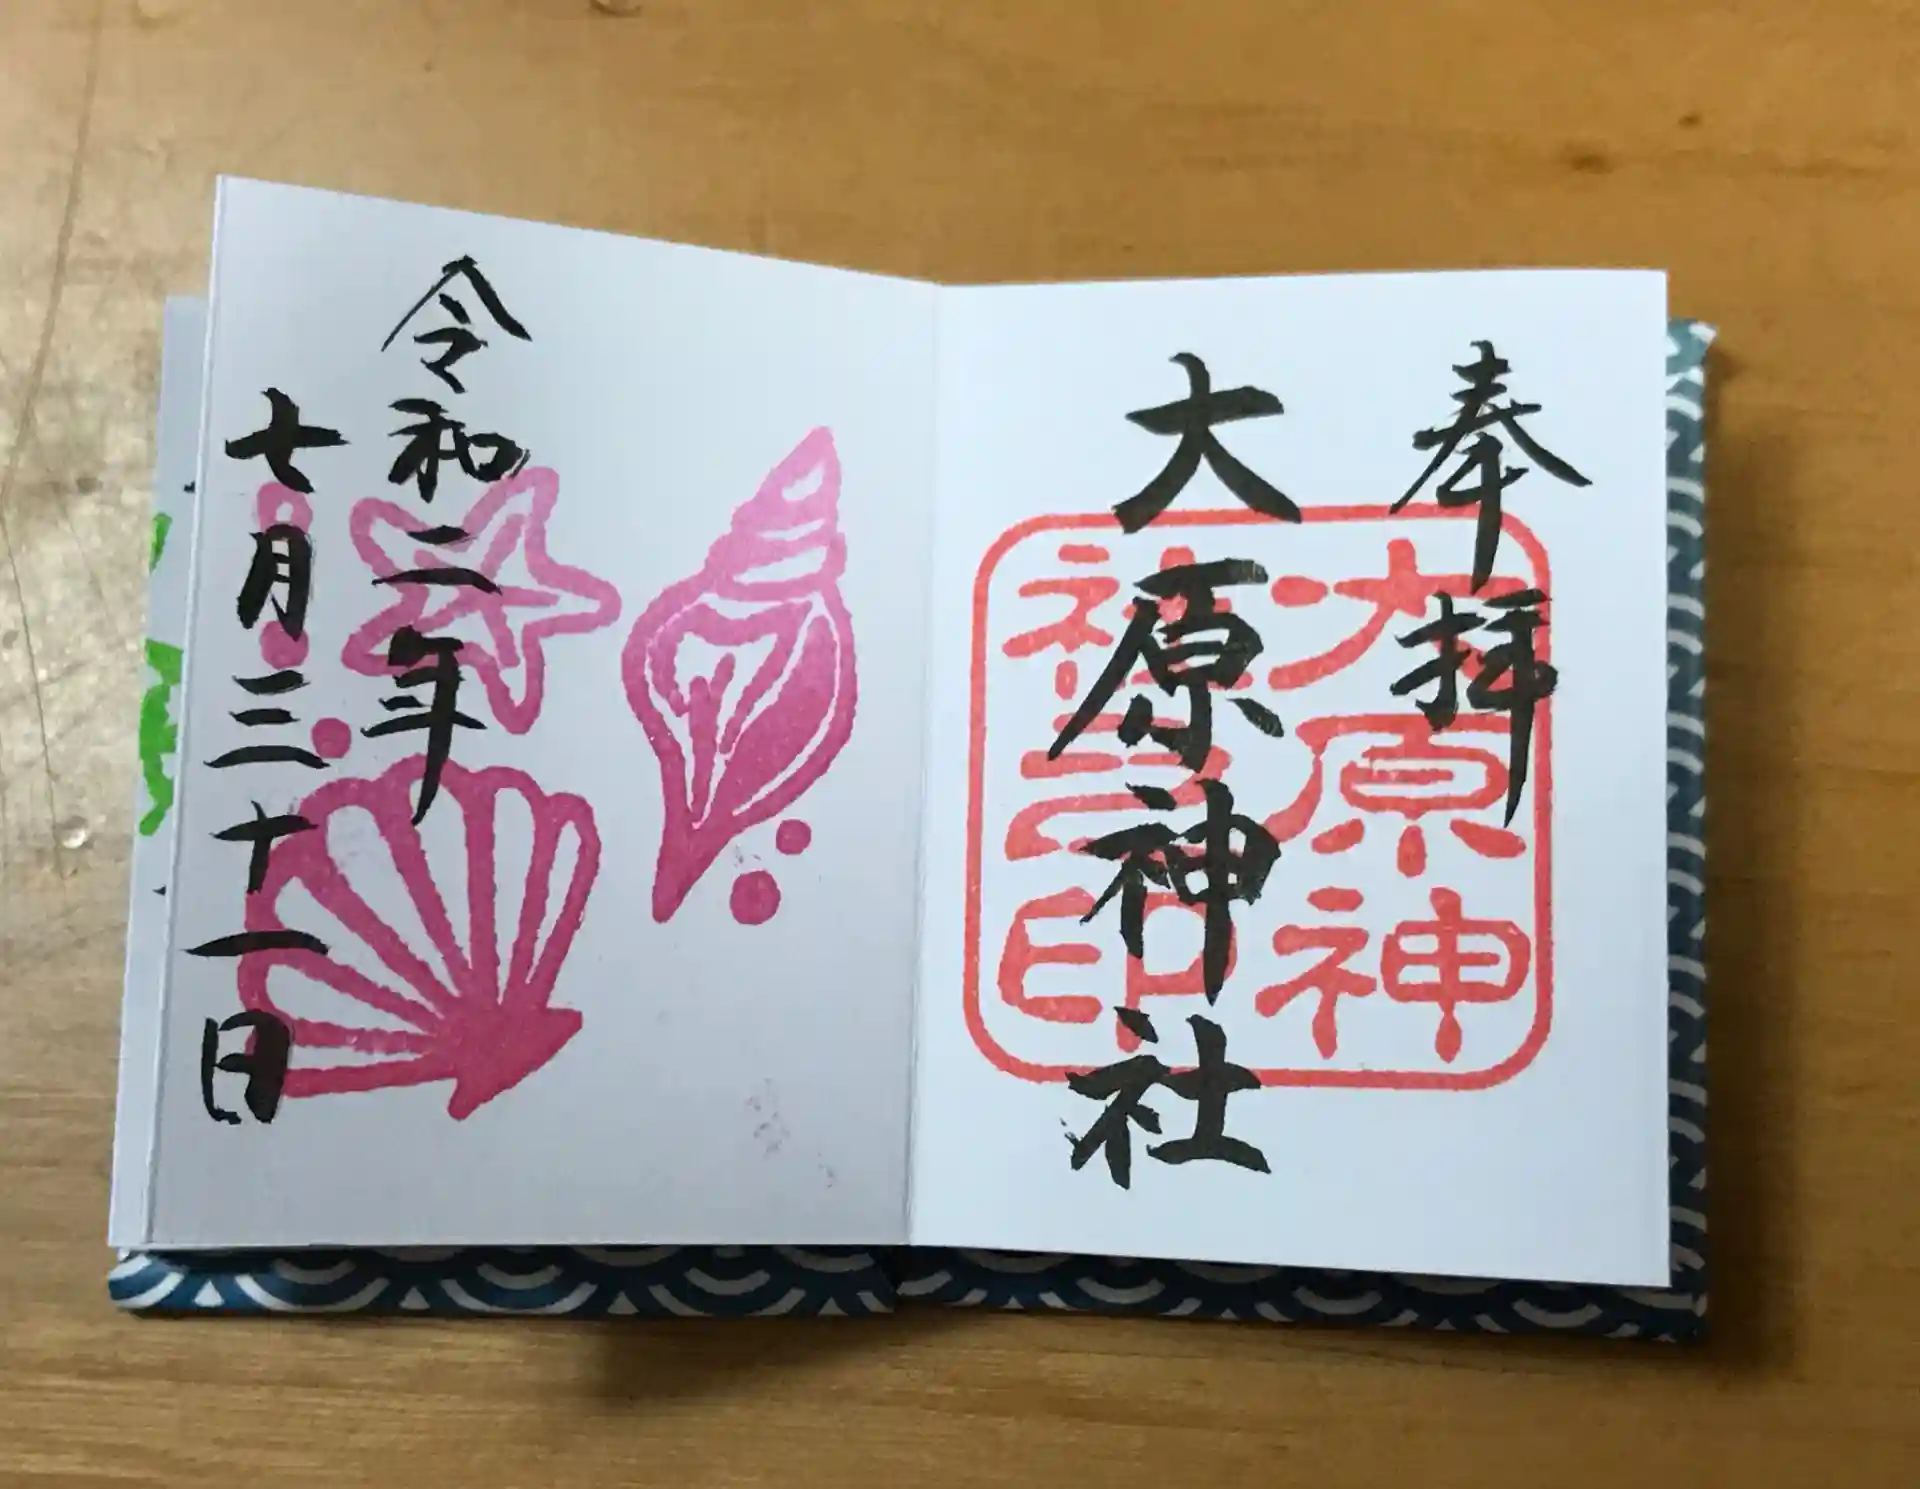 奉拝
大原神社
大原神
社之印
令和二年
七月三十一日